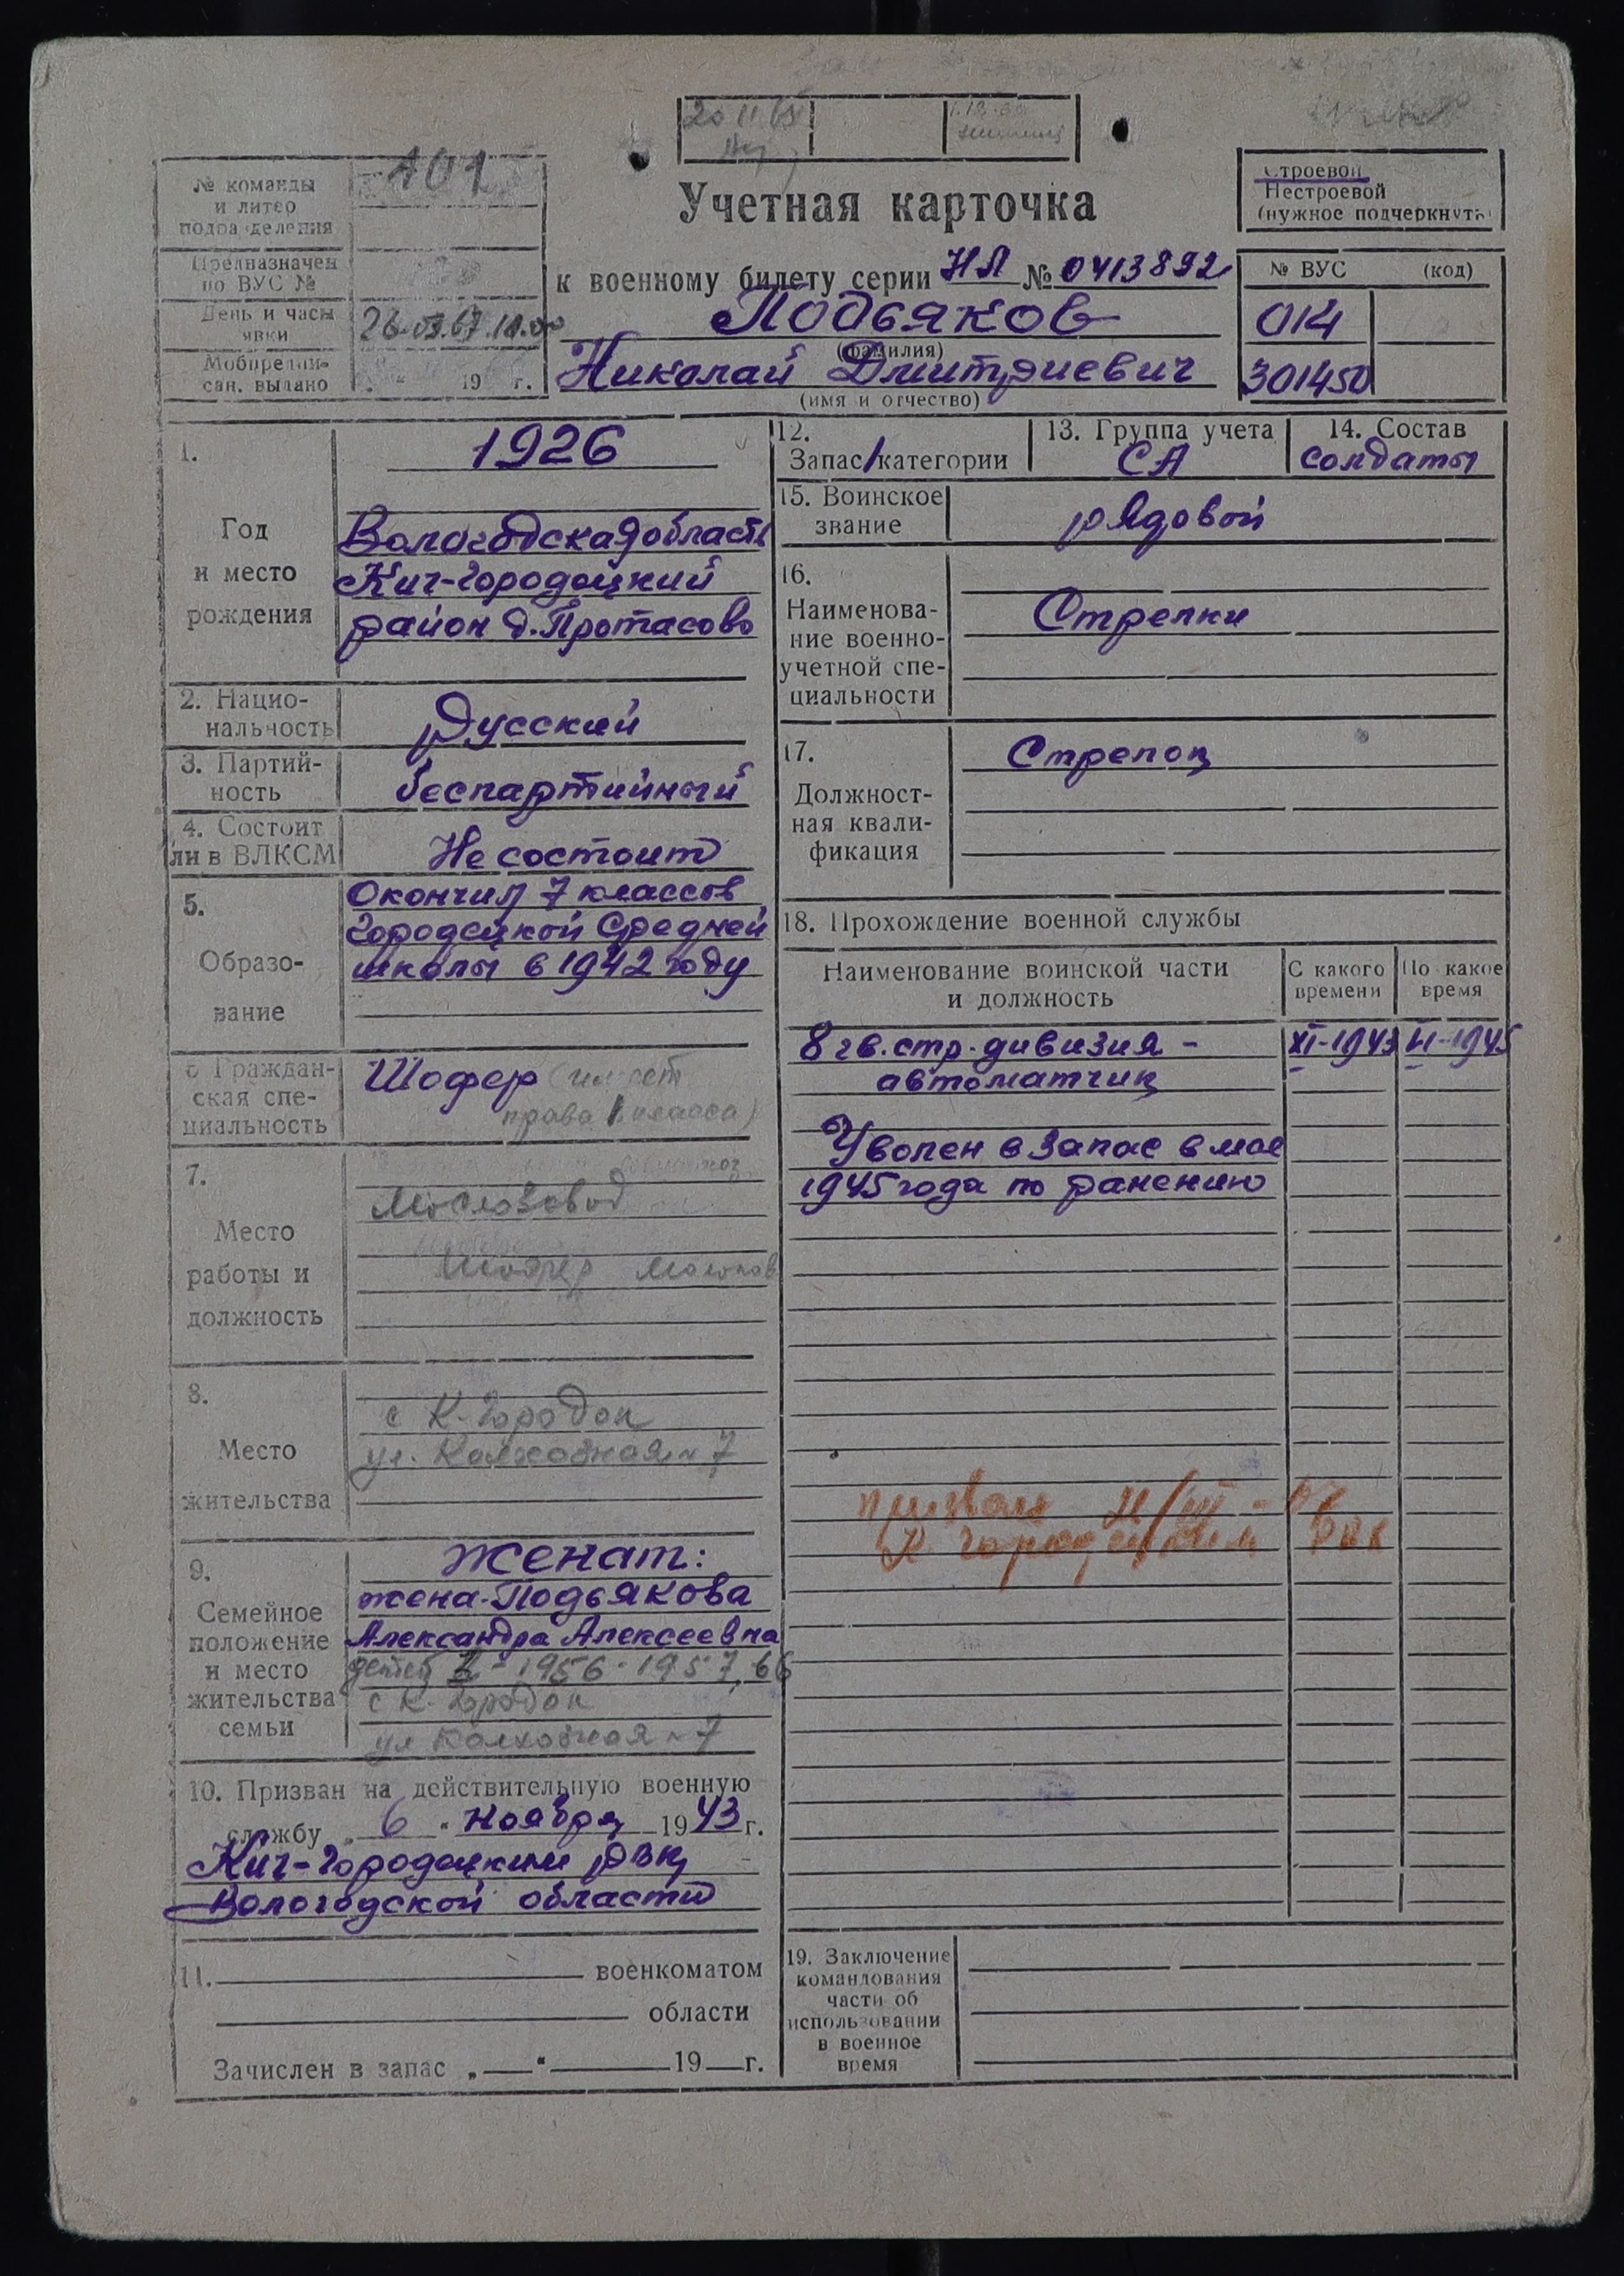 20 11 65
№ команды и литер подразделения
101
Предназначен по ВУС №
День и часы явки
26.03.67.10.00
Мобпредписан. выдано
19 г.
Строевой
Нестроевой
(нужное подчеркнуть)
Учетная карточка
к военному билету серии НЛ № 0413892
Подьяков
(фамилия)
Николай Дмитриевич
(имя и отчество)
№ ВУС (код)
014
301450
1.
Год
и место
рождения
1926
Вологодская область
Кич-Городецкий
район д. Протасово
2. Нацио-
нальность
Русский
3. Партий-
ность
беспартийный
4. Состоит
ли в ВЛКСМ
Не состоит
5.
Образо-
вание
Окончил 7 классов
Городецкой Средней
школы в 1942 году
6 Граждан-
ская спе-
циальность
Шофер (имеет
права 1 класса)
7.
Место
работы и
должность
Маслозавод
Шофер
8.
Место
жительства
с К-Городок
ул. Колхозная 7
9.
Семейное
положение
и место
жительства
семьи
Женат:
жена-Подьякова
Александра Алексеевна
детей 1956-1957, 66
с К-Городок
ул Колхозная 7
10. Призван на действительную военную
службу „ 6 “ ноября 1943 г.
Кич-Городецким РВК
Вологодской области
11. военкоматом
области
Зачислен в запас „ “ 19 г.
12.
Запас 1 категории
13. Группа учета
СА
14. Состав
солдаты
15. Воинское
звание
рядовой
16.
Наименова-
ние военно-
учетной спе-
циальности
Стрелки
17.
Должност-
ная квали-
фикация
Стрелок
18. Прохождение военной службы
Наименование воинской части
и должность
С какого
времени
По какое
время
8 гв. стр. дивизия - XI-1943 VI-1945
автоматчик
Уволен в запас в мае
1945 года по ранению
призван
К городецким РВК
19. Заключение
командования
части об
использовании
в военное
время